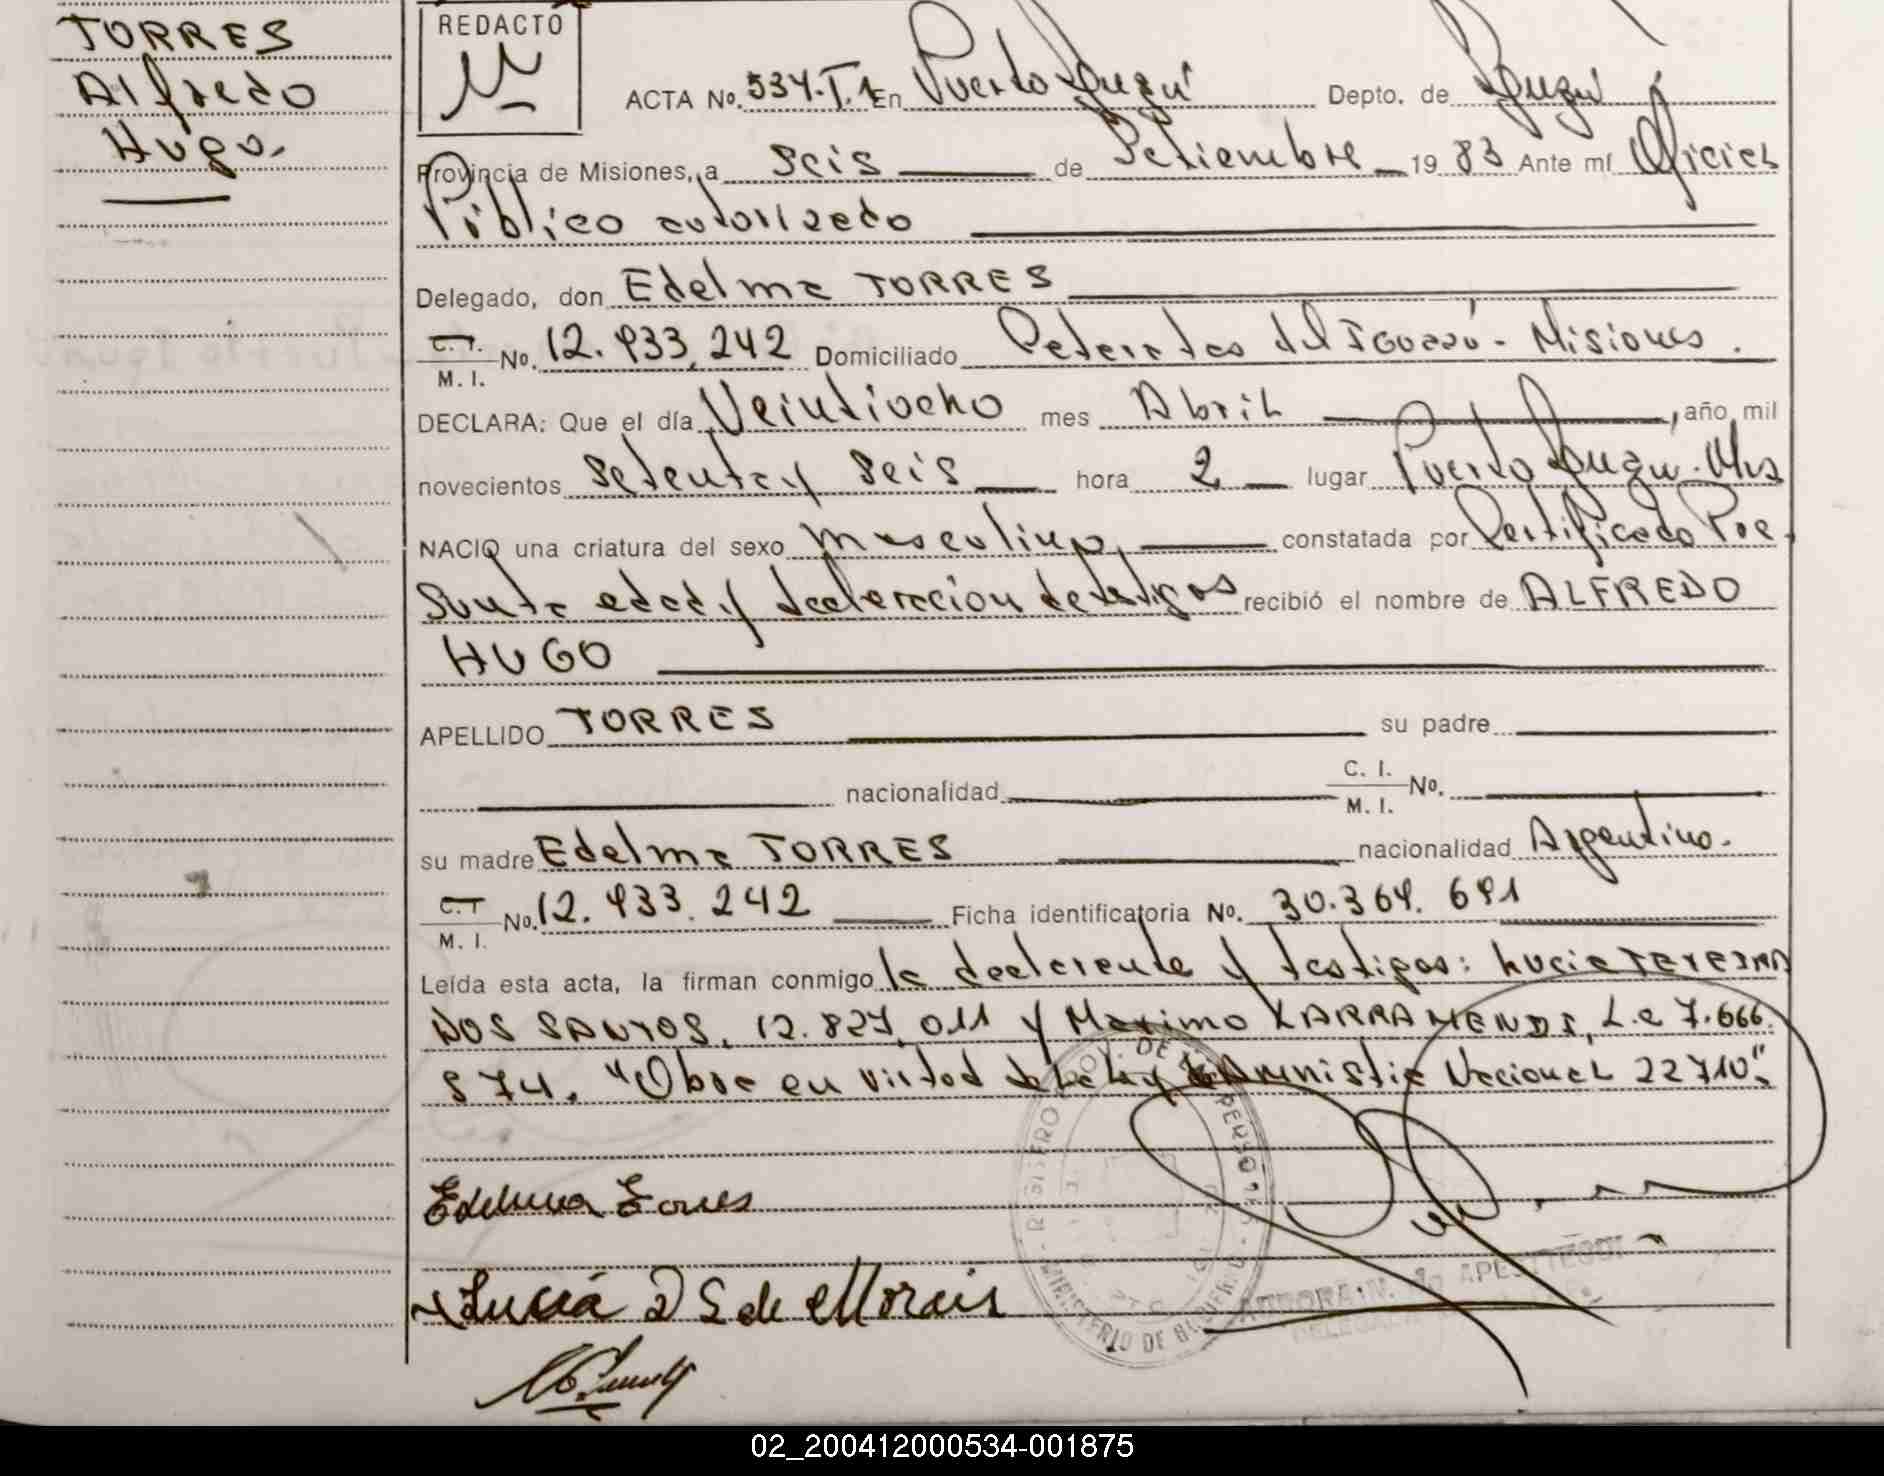 TORRES
Alfredo
Hugo.
REDACTÓ
ACTA No. 534.T.1 En Puerto Iguazú Depto. de Iguazú
Provincia de Misiones, a Seis de Setiembre 1983 Ante mí Oficial
Público autorizado
Delegado, don Edelma TORRES
C.I. M. I. No. 12.933.242 Domiciliado Cataratas del IGuazú - Misiones.
DECLARA: Que el día Veintiocho mes Abril, año mil
novecientos Setenta y Seis hora 2 lugar Puerto Iguazú. Mis
NACIO una criatura del sexo masculino, constatada por Certificado Pre-
sunta edad y declaración de testigos recibió el nombre de ALFREDO
HUGO
APELLIDO TORRES su padre
nacionalidad C. I. M. I. No.
su madre Edelma TORRES nacionalidad Argentina.
C.I. M. I. No. 12.933.242 Ficha identificatoria No. 30.364.691
Leída esta acta, la firman conmigo la declarante y testigos: Lucia TERESA
DOS SANTOS, 12.827.011 y Maximo LARRAMENDI, L.e 7.666.
874. "Obra en virtud de la Ley de Amnistia Nacional 22710".
Edelma Torres
Lucía D S de Morais
REGISTRO PROV. DE LAS PERSONAS
MINISTERIO DE GOBIERNO
AURORA N. de APESTTEGUI
DELEGADA
02_200412000534-001875